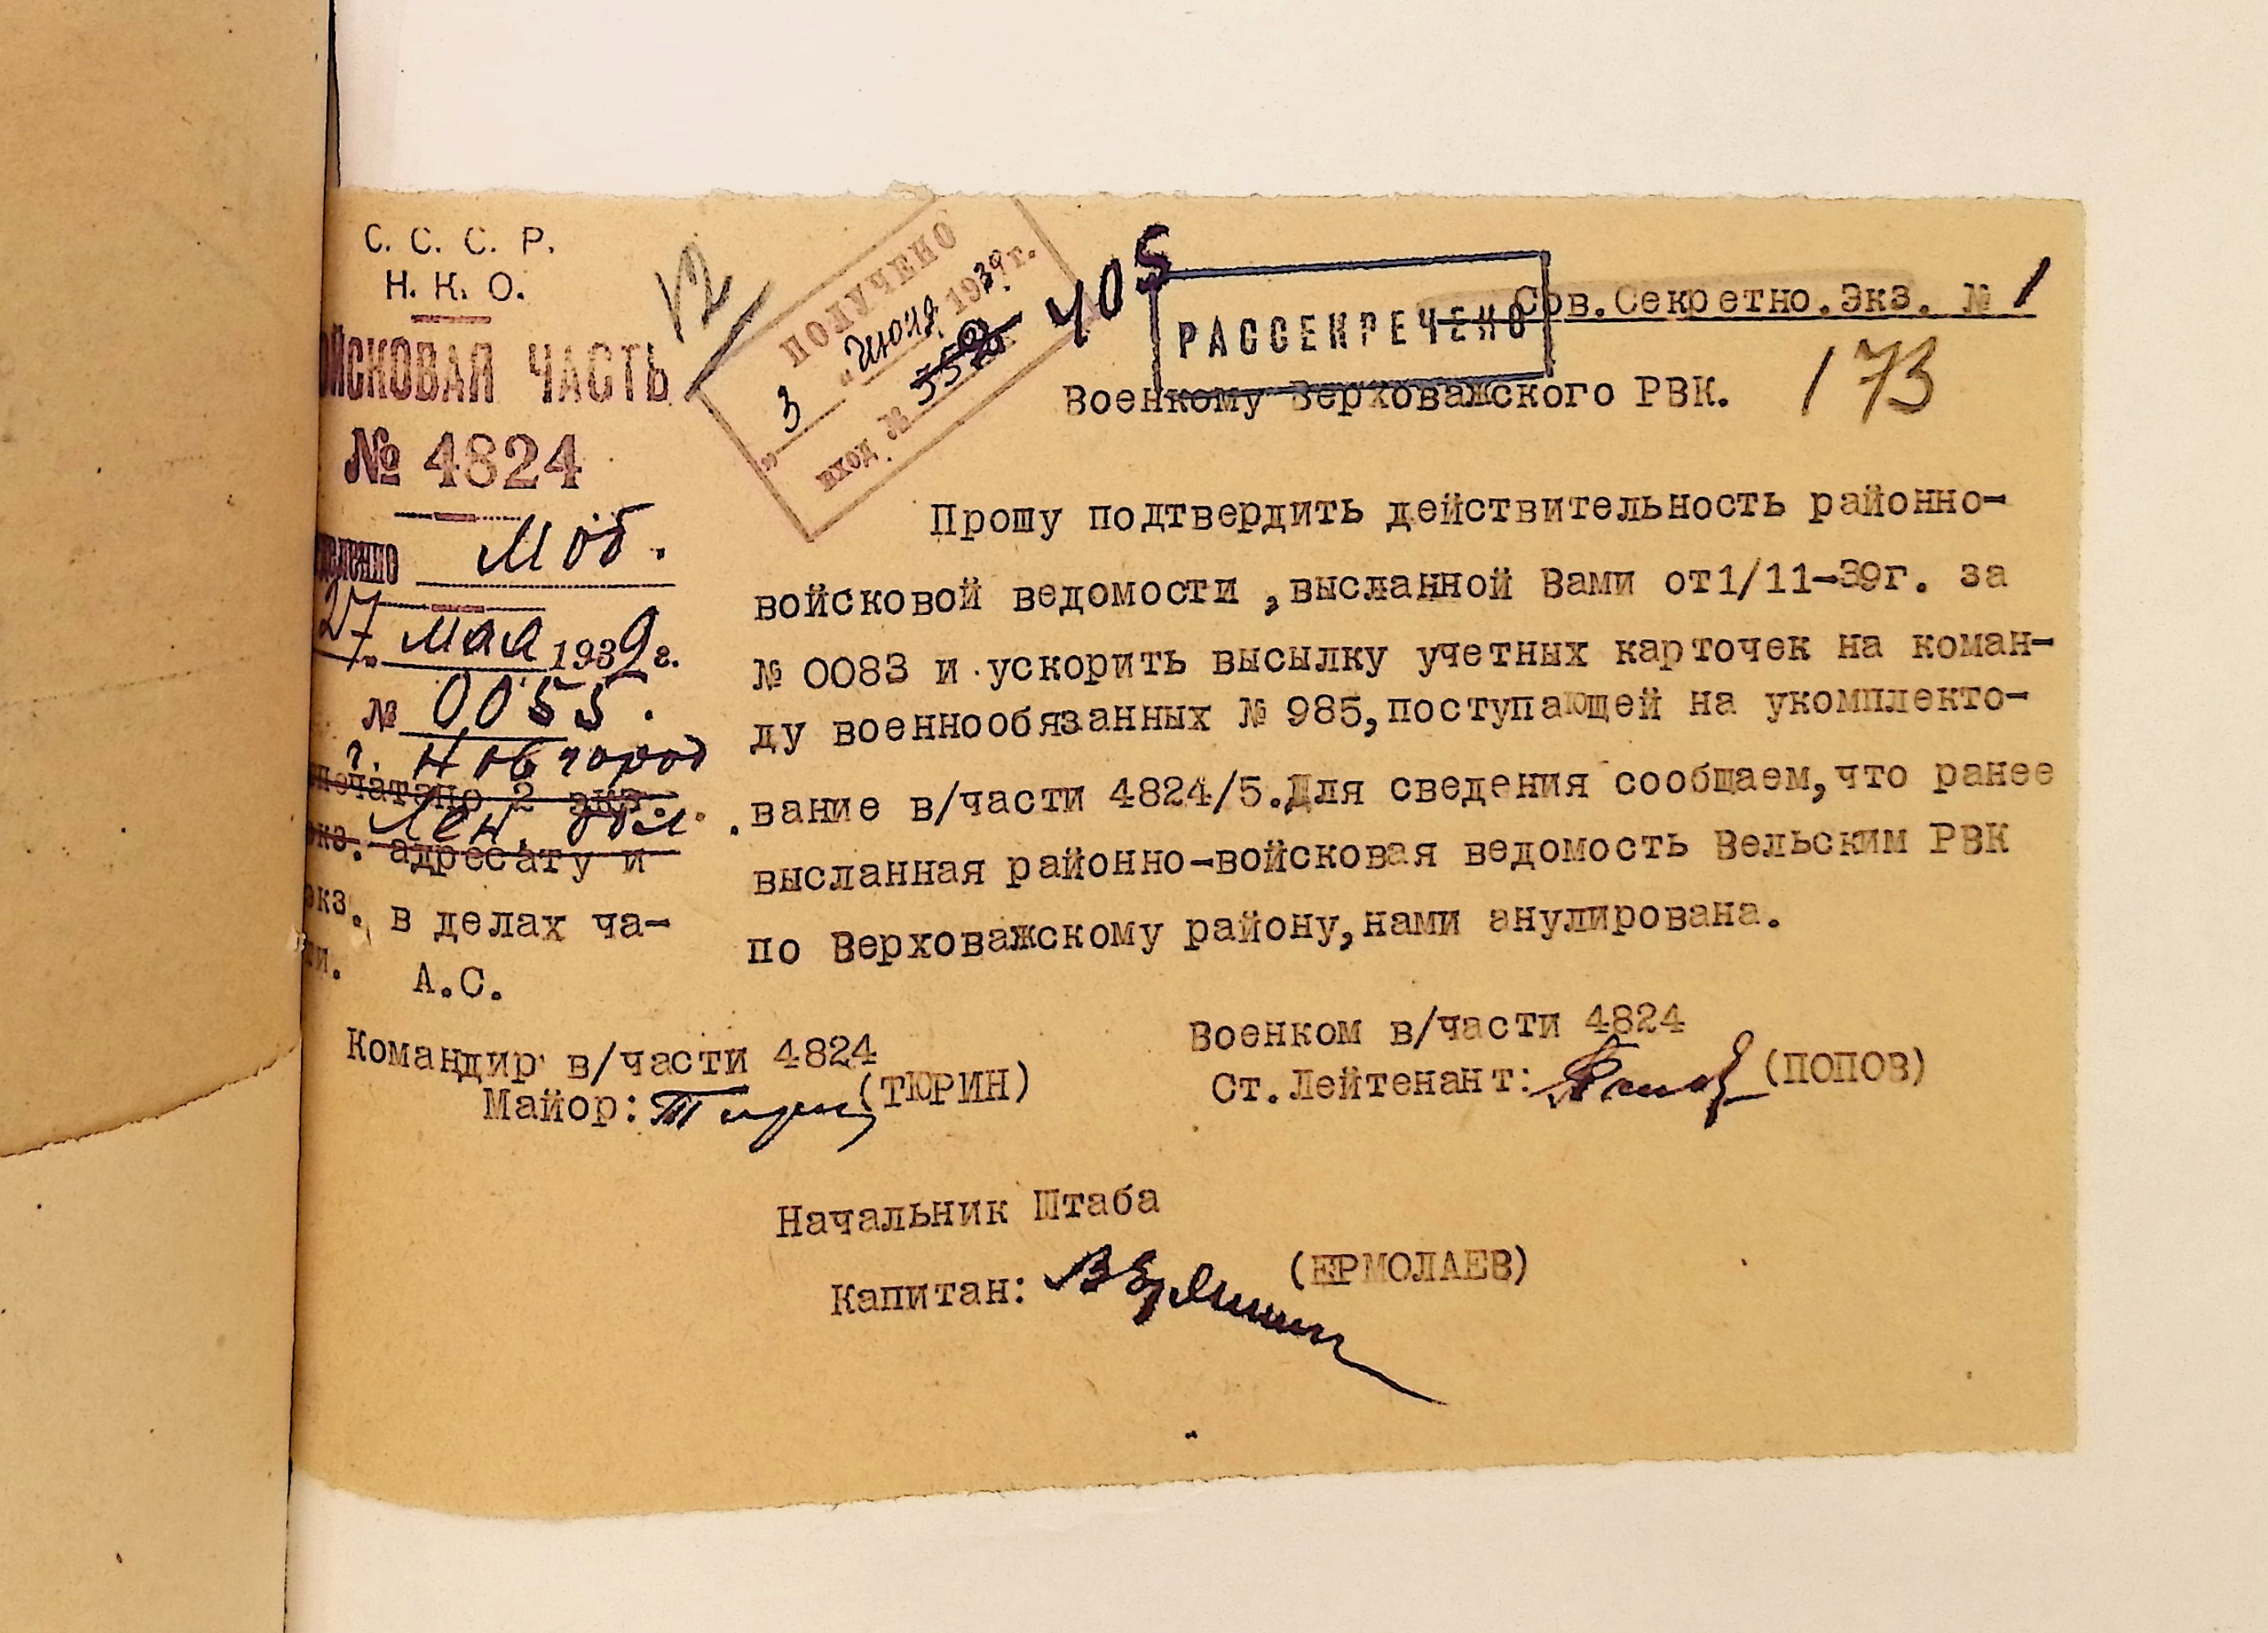 С. С. С. Р.
Н. К. О.
ОЙСКОВАЯ ЧАСТЬ
№ 4824
деление Моб.
27 " мая 1939 г.
№ 0055.
г. Новгород
печатано 2 экз.
Лен. обл.
экз. адресату и
экз. в делах ча-
ти.
А.С.
12
ПОЛУЧЕНО
" 3 " Июня 1939 г.
ВХОД №
405
РАССЕКРЕЧЕНО
Сов.Секретно.Экз. № 1
173
Военкому Верховажского РВК.
Прошу подтвердить действительность районно-
войсковой ведомости ,высланной Вами от1/11-39г. за
№ 0083 и ускорить высылку учетных карточек на коман-
ду военнообязанных № 985,поступающей на укомплекто-
вание в/части 4824/5.Для сведения сообщаем,что ранее
высланная районно-войсковая ведомость Вельским РВК
по Верховажскому району,нами анулирована.
Командир в/части 4824
Майор: (ТЮРИН)
Военком в/части 4824
Ст.Лейтенант: (ПОПОВ)
Начальник Штаба
Капитан: (ЕРМОЛАЕВ)